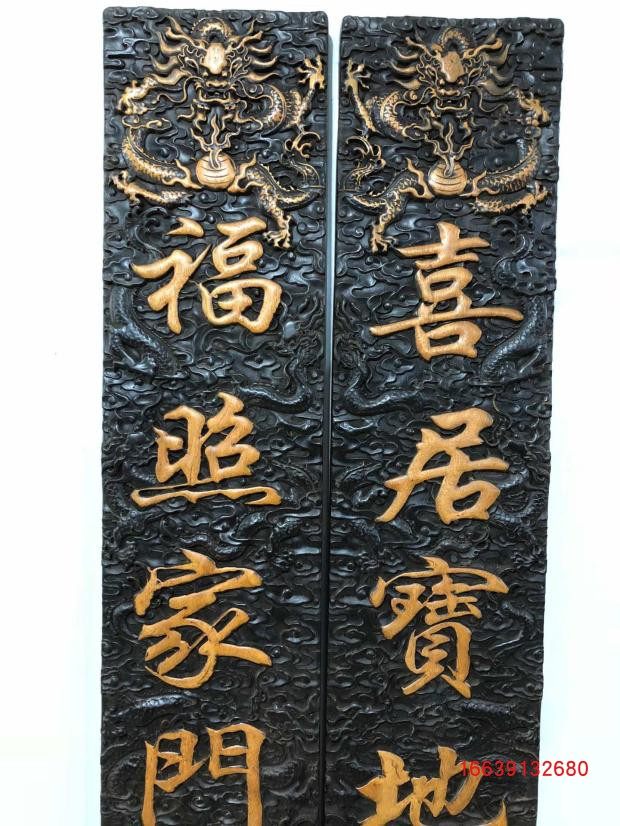 喜居寶地
福照家門
16639132680